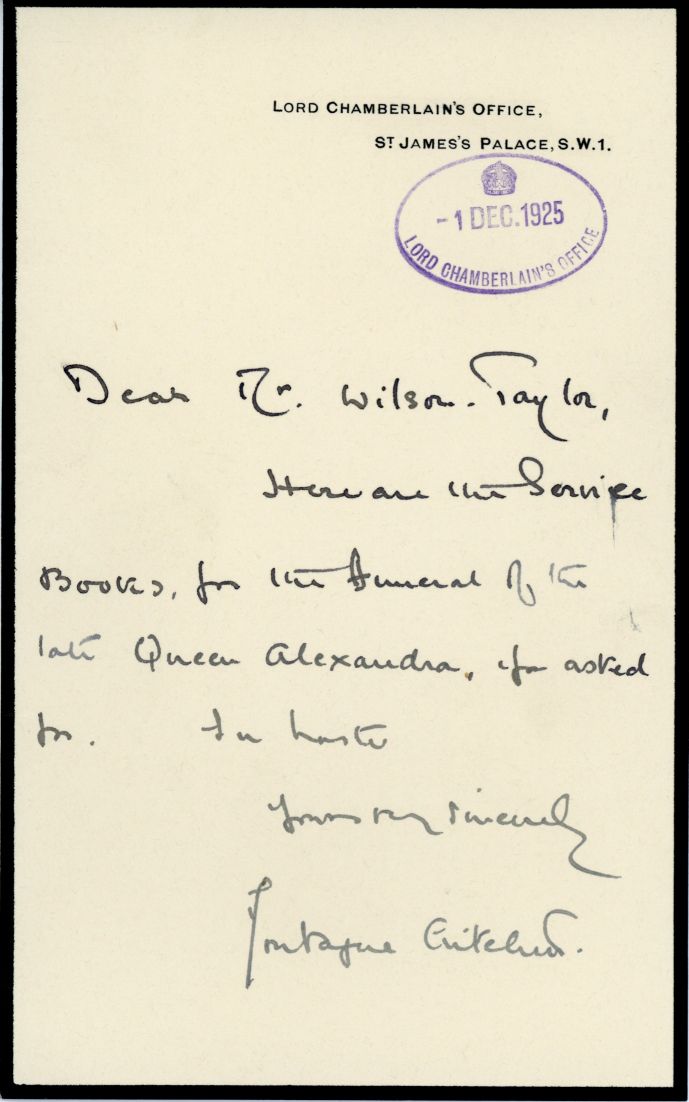 LORD CHAMBERLAIN'S OFFICE,
ST JAMES'S PALACE, S.W.1.
- 1 DEC. 1925
LORD CHAMBERLAIN'S OFFICE
Dear Mr. Wilson-Taylor,
Here are the Service
Books, for the Funeral of the
late Queen Alexandra, you asked
for. In haste
Yours very sincerely
Montague